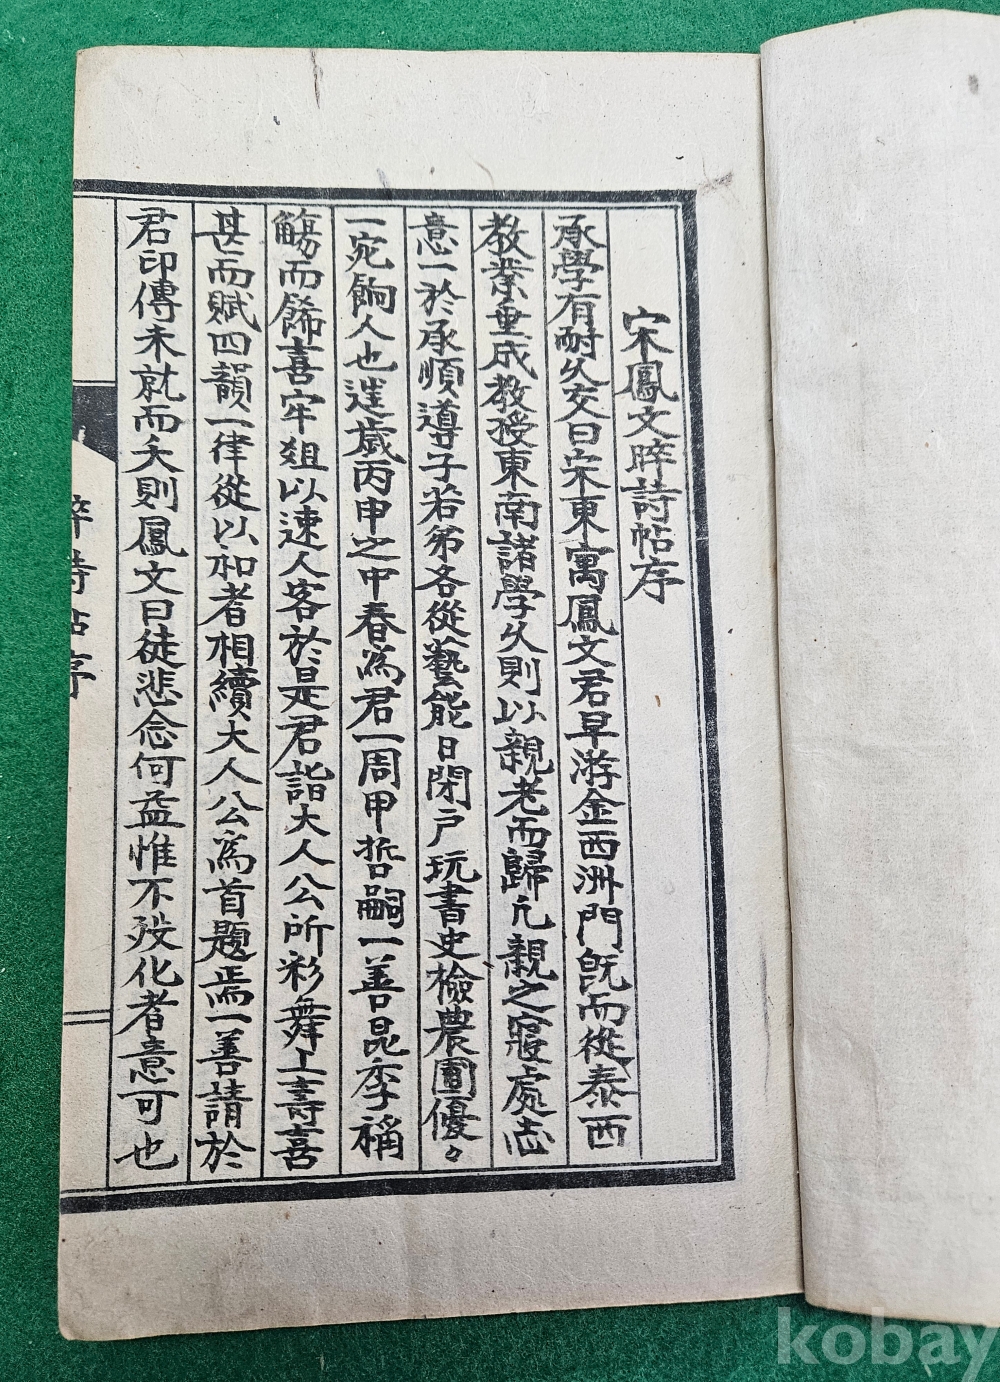 宋鳳文晬詩帖序
承學有耐久交曰宋東寓鳳文君早游金西洲門旣而從泰西
教業垂成教授東南諸學久則以親老而歸凡親之寢處志
意一於承順導子若弟各從藝能日閉戶玩書史檢農圃優々
一宛餉人也逹歲丙申之中春爲君一周甲哲嗣一善昆季稱
觴而餙喜牢俎以速人客於是君詣大人公所彩舞上壽喜
甚而賦四韻一律從以和者相續大人公爲首題焉一善請於
君印傳未就而夭則鳳文曰徒悲念何益惟不歿化者意可也
晬詩帖序
kobay